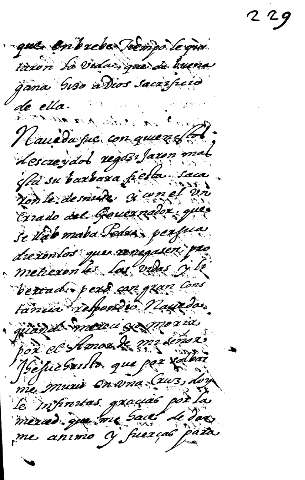 229
que en breve Tiempo le qui
taron la Vida, que de buena
gana hiso a Dios sacrificio
de ella.
Naveda fue con quien estos
descreydos regis
su barbara fiera saca
ronle desnudo y con el Un
Criado del Governador, que
se llamaba Pedro, persua
dieronlos que renegasen, pro
metieronles las vidas y li
bertad, pero con gran Cons
tancia respondio Naveda
que moria
por el Amor de mi Señor
Jhesuchristo, que por
me murio en una Cruz, doy
le infinitas gracias por la
merced que me hace de dar
me animo y fuerças para